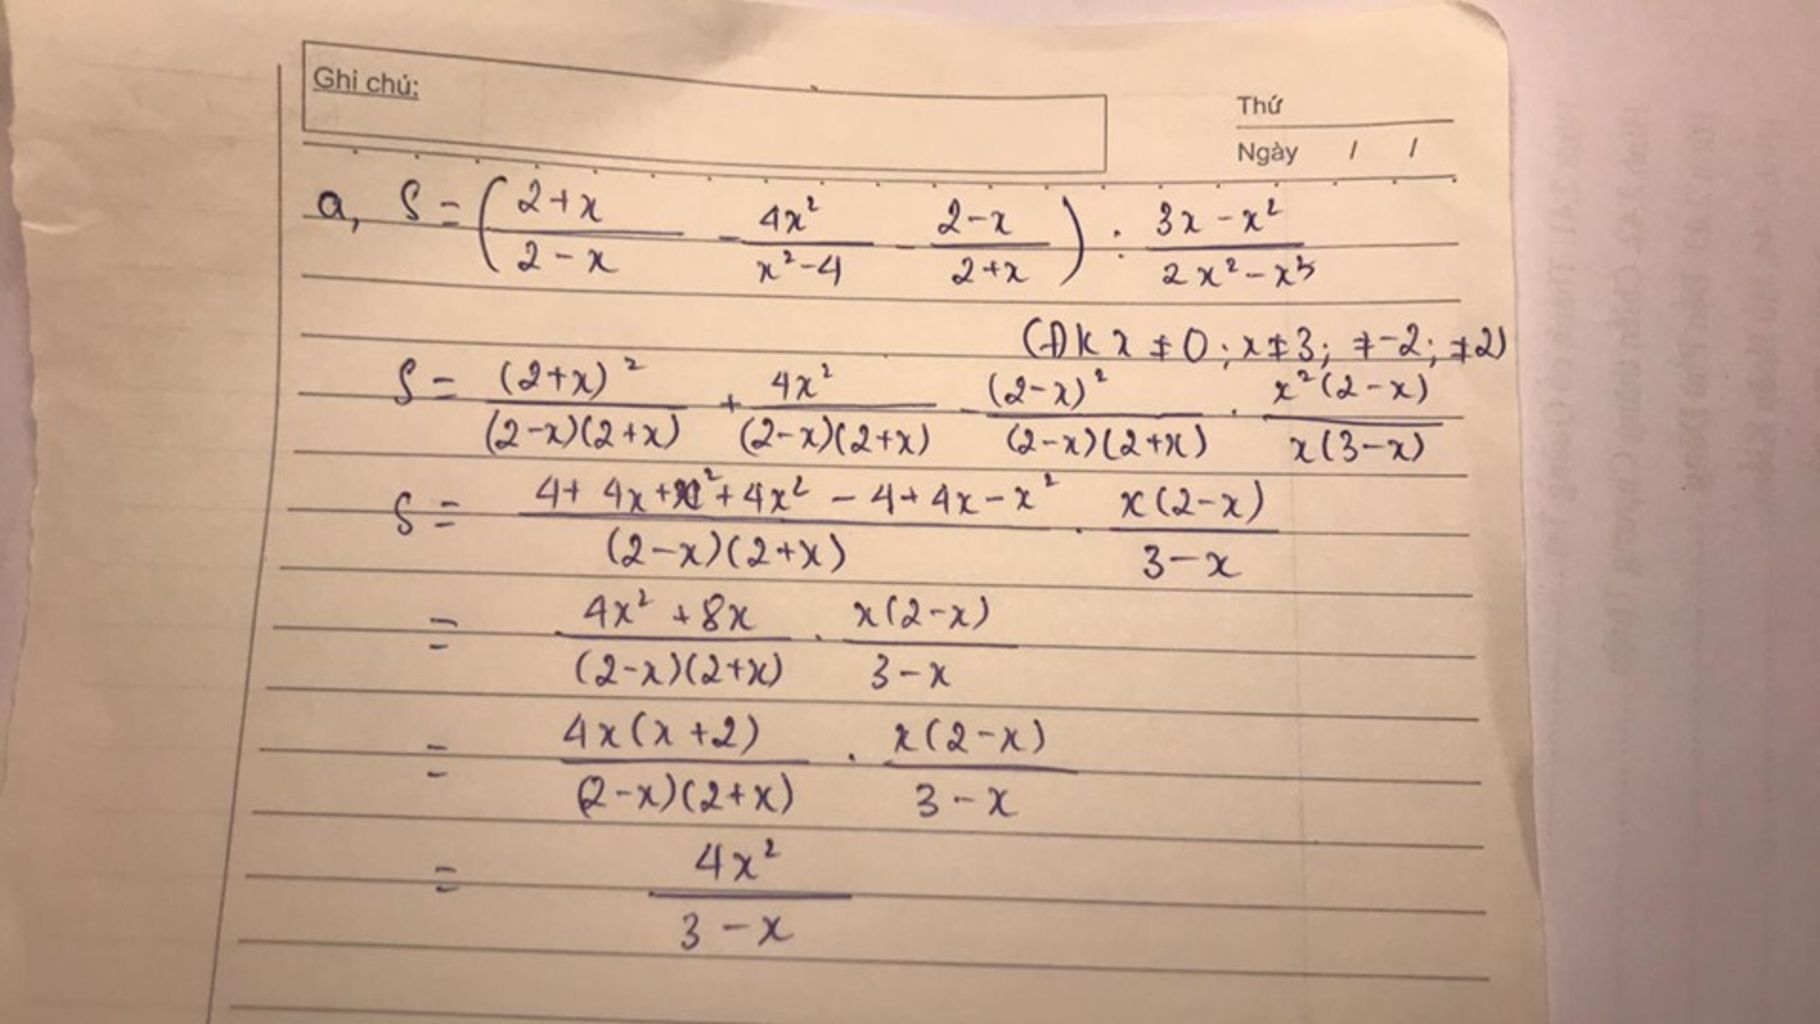 Ghi chú:
Thứ
Ngày / /
a, S = ( (2+x)/(2-x) - 4x²/(x²-4) - (2-x)/(2+x) ) : (3x-x²)/(2x²-x³)
(ĐK x ≠ 0; x ≠ 3; ≠ -2; ≠ 2)
S = (2+x)²/((2-x)(2+x)) + 4x²/((2-x)(2+x)) - (2-x)²/((2-x)(2+x)) . x²(2-x)/(x(3-x))
S = (4+4x+x²+4x²-4+4x-x²)/((2-x)(2+x)) . x(2-x)/(3-x)
= (4x²+8x)/((2-x)(2+x)) . x(2-x)/(3-x)
= 4x(x+2)/((2-x)(2+x)) . x(2-x)/(3-x)
= 4x²/(3-x)